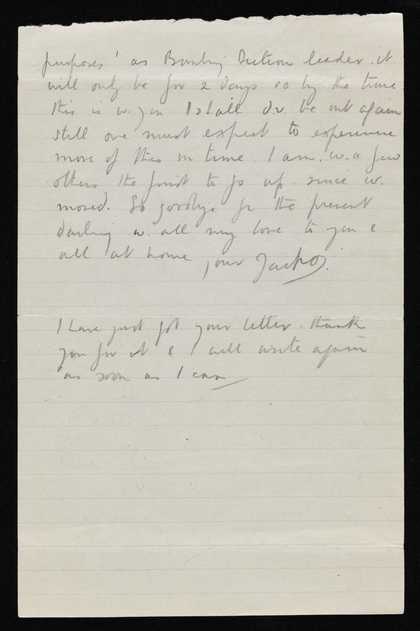 purposes' as Bombing Section leader. it
will only be for 2 days so by the time
this is w. you I shall d.v. be out again
still one must expect to experience
more of this in time. I am, w. a few
others the first to go up since we
moved. So goodbye for the present
darling w. all my love to you &
all at home your Jacko.
I have just got your letter. thank
you for it & I will write again
as soon as I can